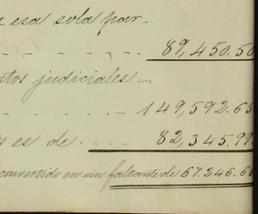 esa sola par-
- - - - - - - 89,450.50
judiciales -
- - - - - - 149,592.65
es de - - - - 82,345.99
convertido en un faltante de 67.246.66